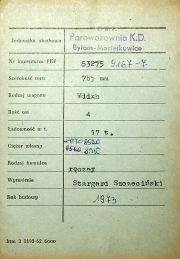 P.K.P.
Jednostka służbowa Parowozownia K.D.
Bytom-Maciejkowice
Nr inwentarza PKP 53275 9167-7
Szerokość toru 785 mm
Rodzaj wagonu Wddxh
Ilość osi 4
Ładowność w t. 17 t.
Ciężar własny 8520
8560 8510
Rodzaj hamulca ręczny
Wyprawienie Stargard Szczeciński
Rok budowy 1973